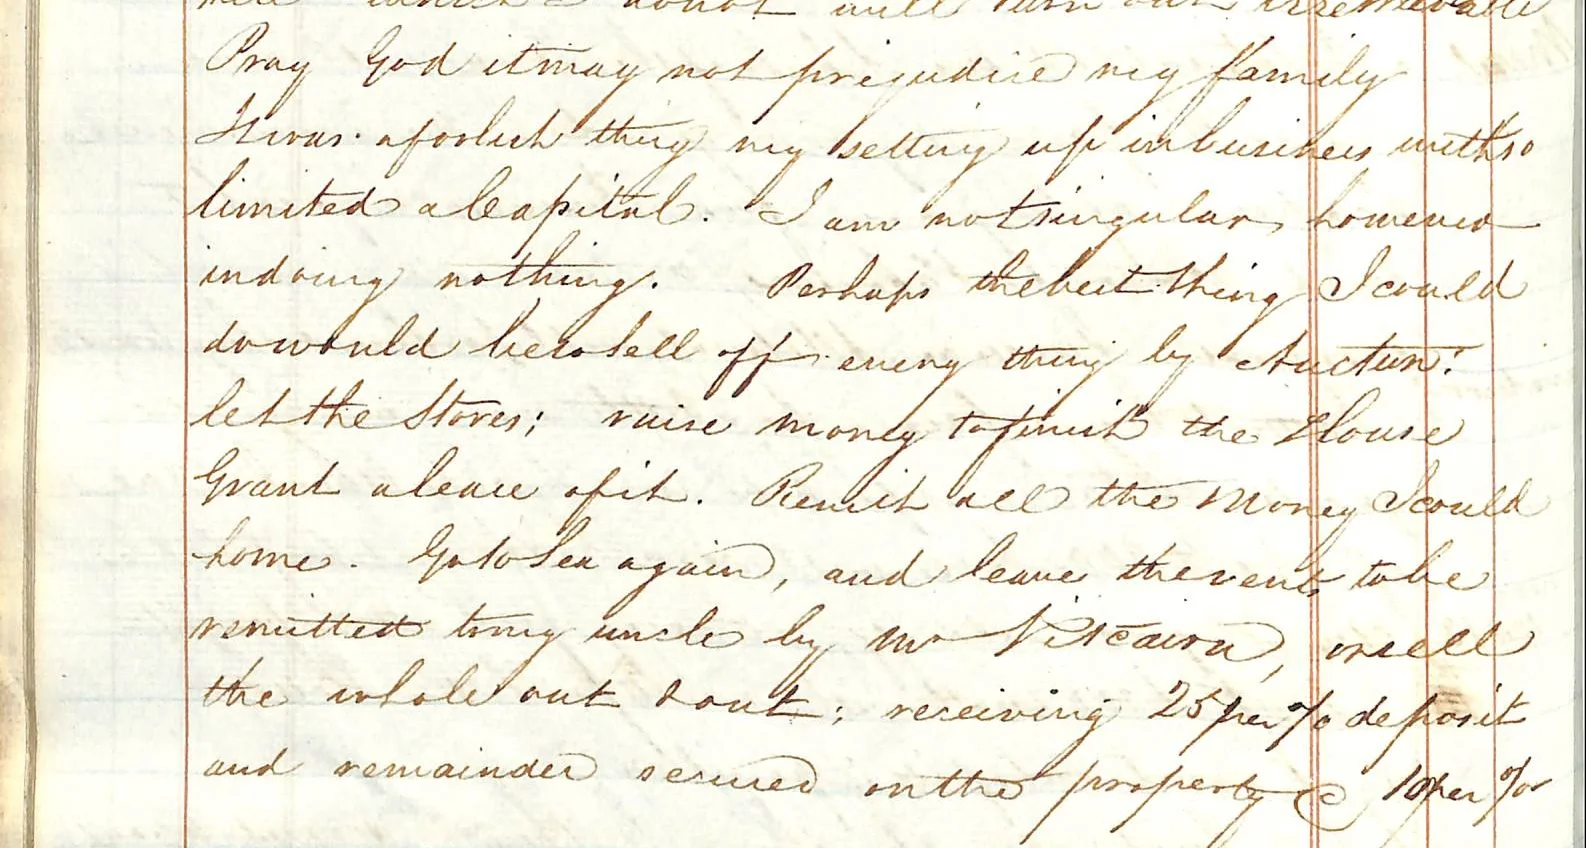 doubt will turn out irretrievable
Pray God it may not prejudice my family
It was a foolish thing my setting up in business with so
limited a Capital. I am not singular however
in doing nothing. Perhaps the best thing I could
do would be to sell off every thing by Auction:
let the Stores; raise money to finish the House
Grant a lease of it. Remit all the Money I could
home. Go to Sea again, and leave the rents to be
remitted to my uncle by Mr Pitcairn, or sell
the whole out & out; receiving 25 per % deposit
and remainder secured on the property @ 10 per %